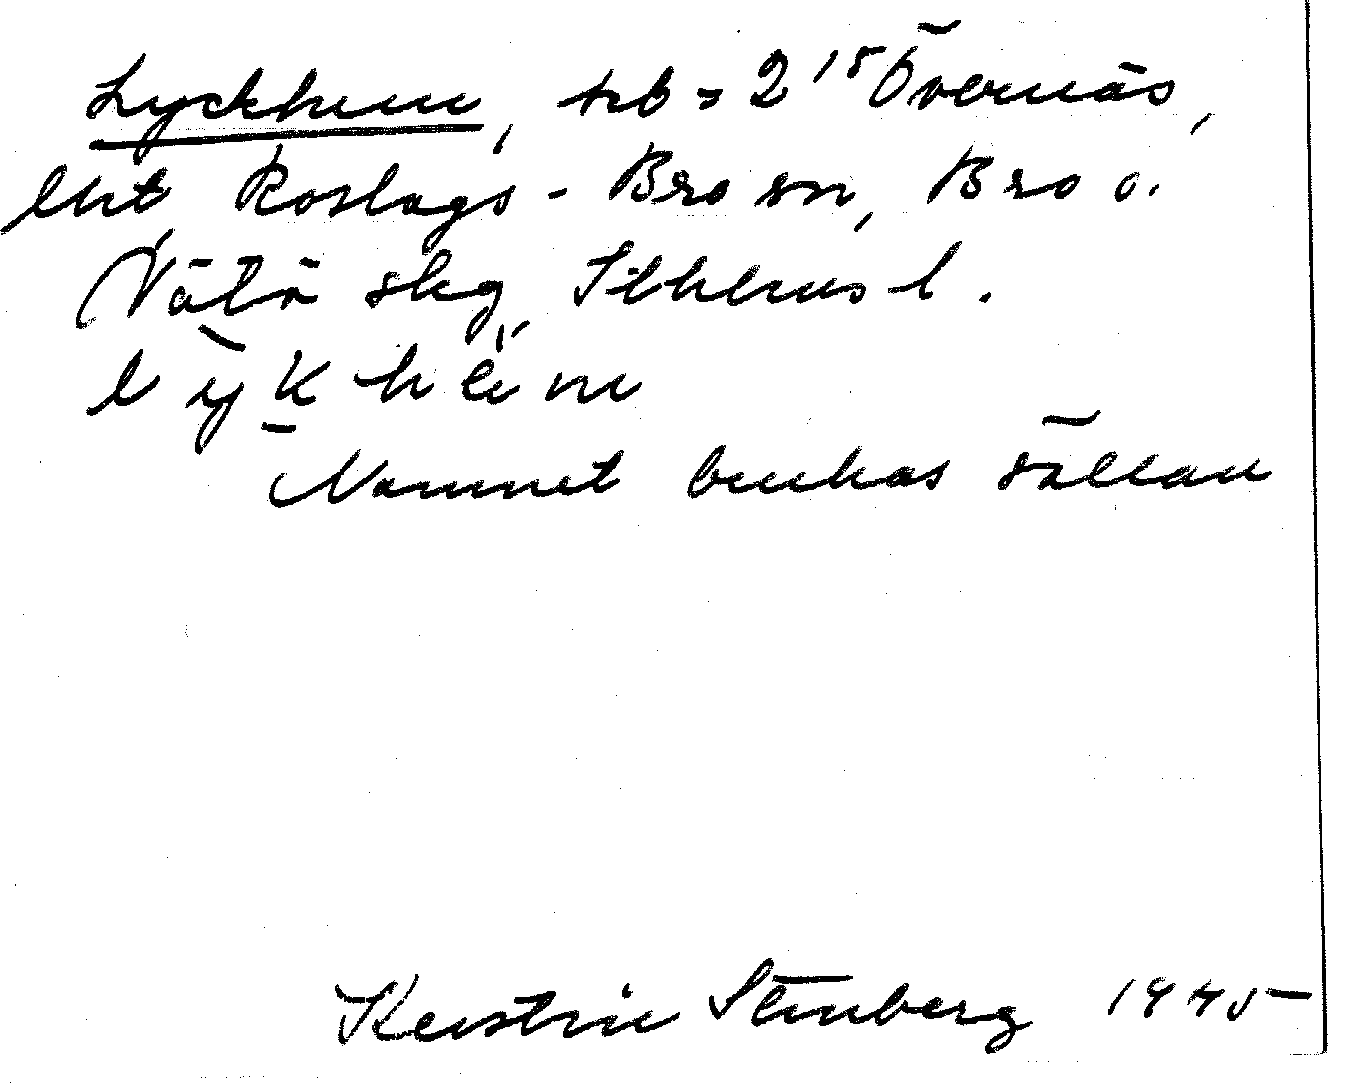 Lyckhem, trb = 2¹⁵ Övernäs,
lht Roslags-Bro sn, Bro o.
Vätö skg, Sthlms l.
Namnet brukas sällan
Kerstin Stenberg 1945